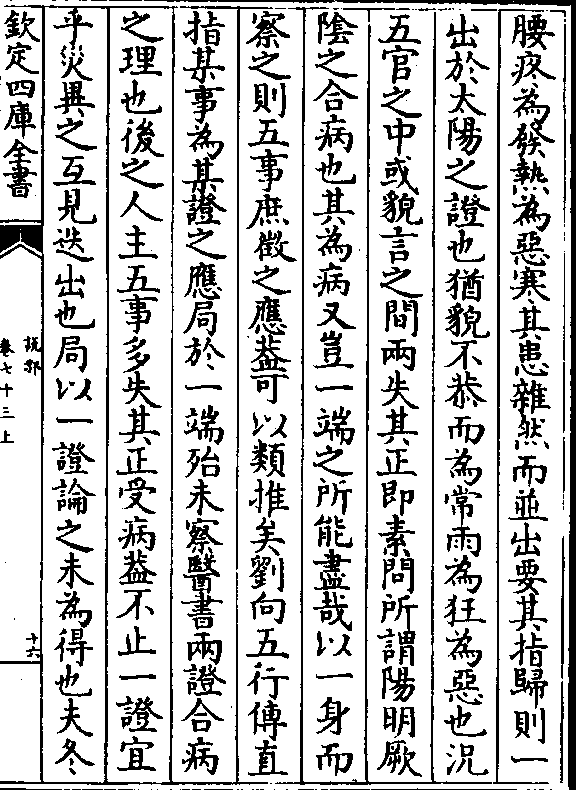 腰疼為發熱為惡寒其患雜然而並出要其指歸則一
出於太陽之證也猶貌不恭而為常雨為狂為惡也況
五官之中或貌言之間兩失其正即素問所謂陽明厥
陰之合病也其為病又豈一端之所能盡哉以一身而
察之則五事庶徵之應葢可以類推矣劉向五行傳直
指某事為某證之應局於一端殆未察醫書兩證合病
之理也後之人主五事多失其正受病葢不止一證宜
乎災異之互見迭出也局以一證論之未為得也夫冬
欽定四庫全書
說郛
卷七十三上
十六